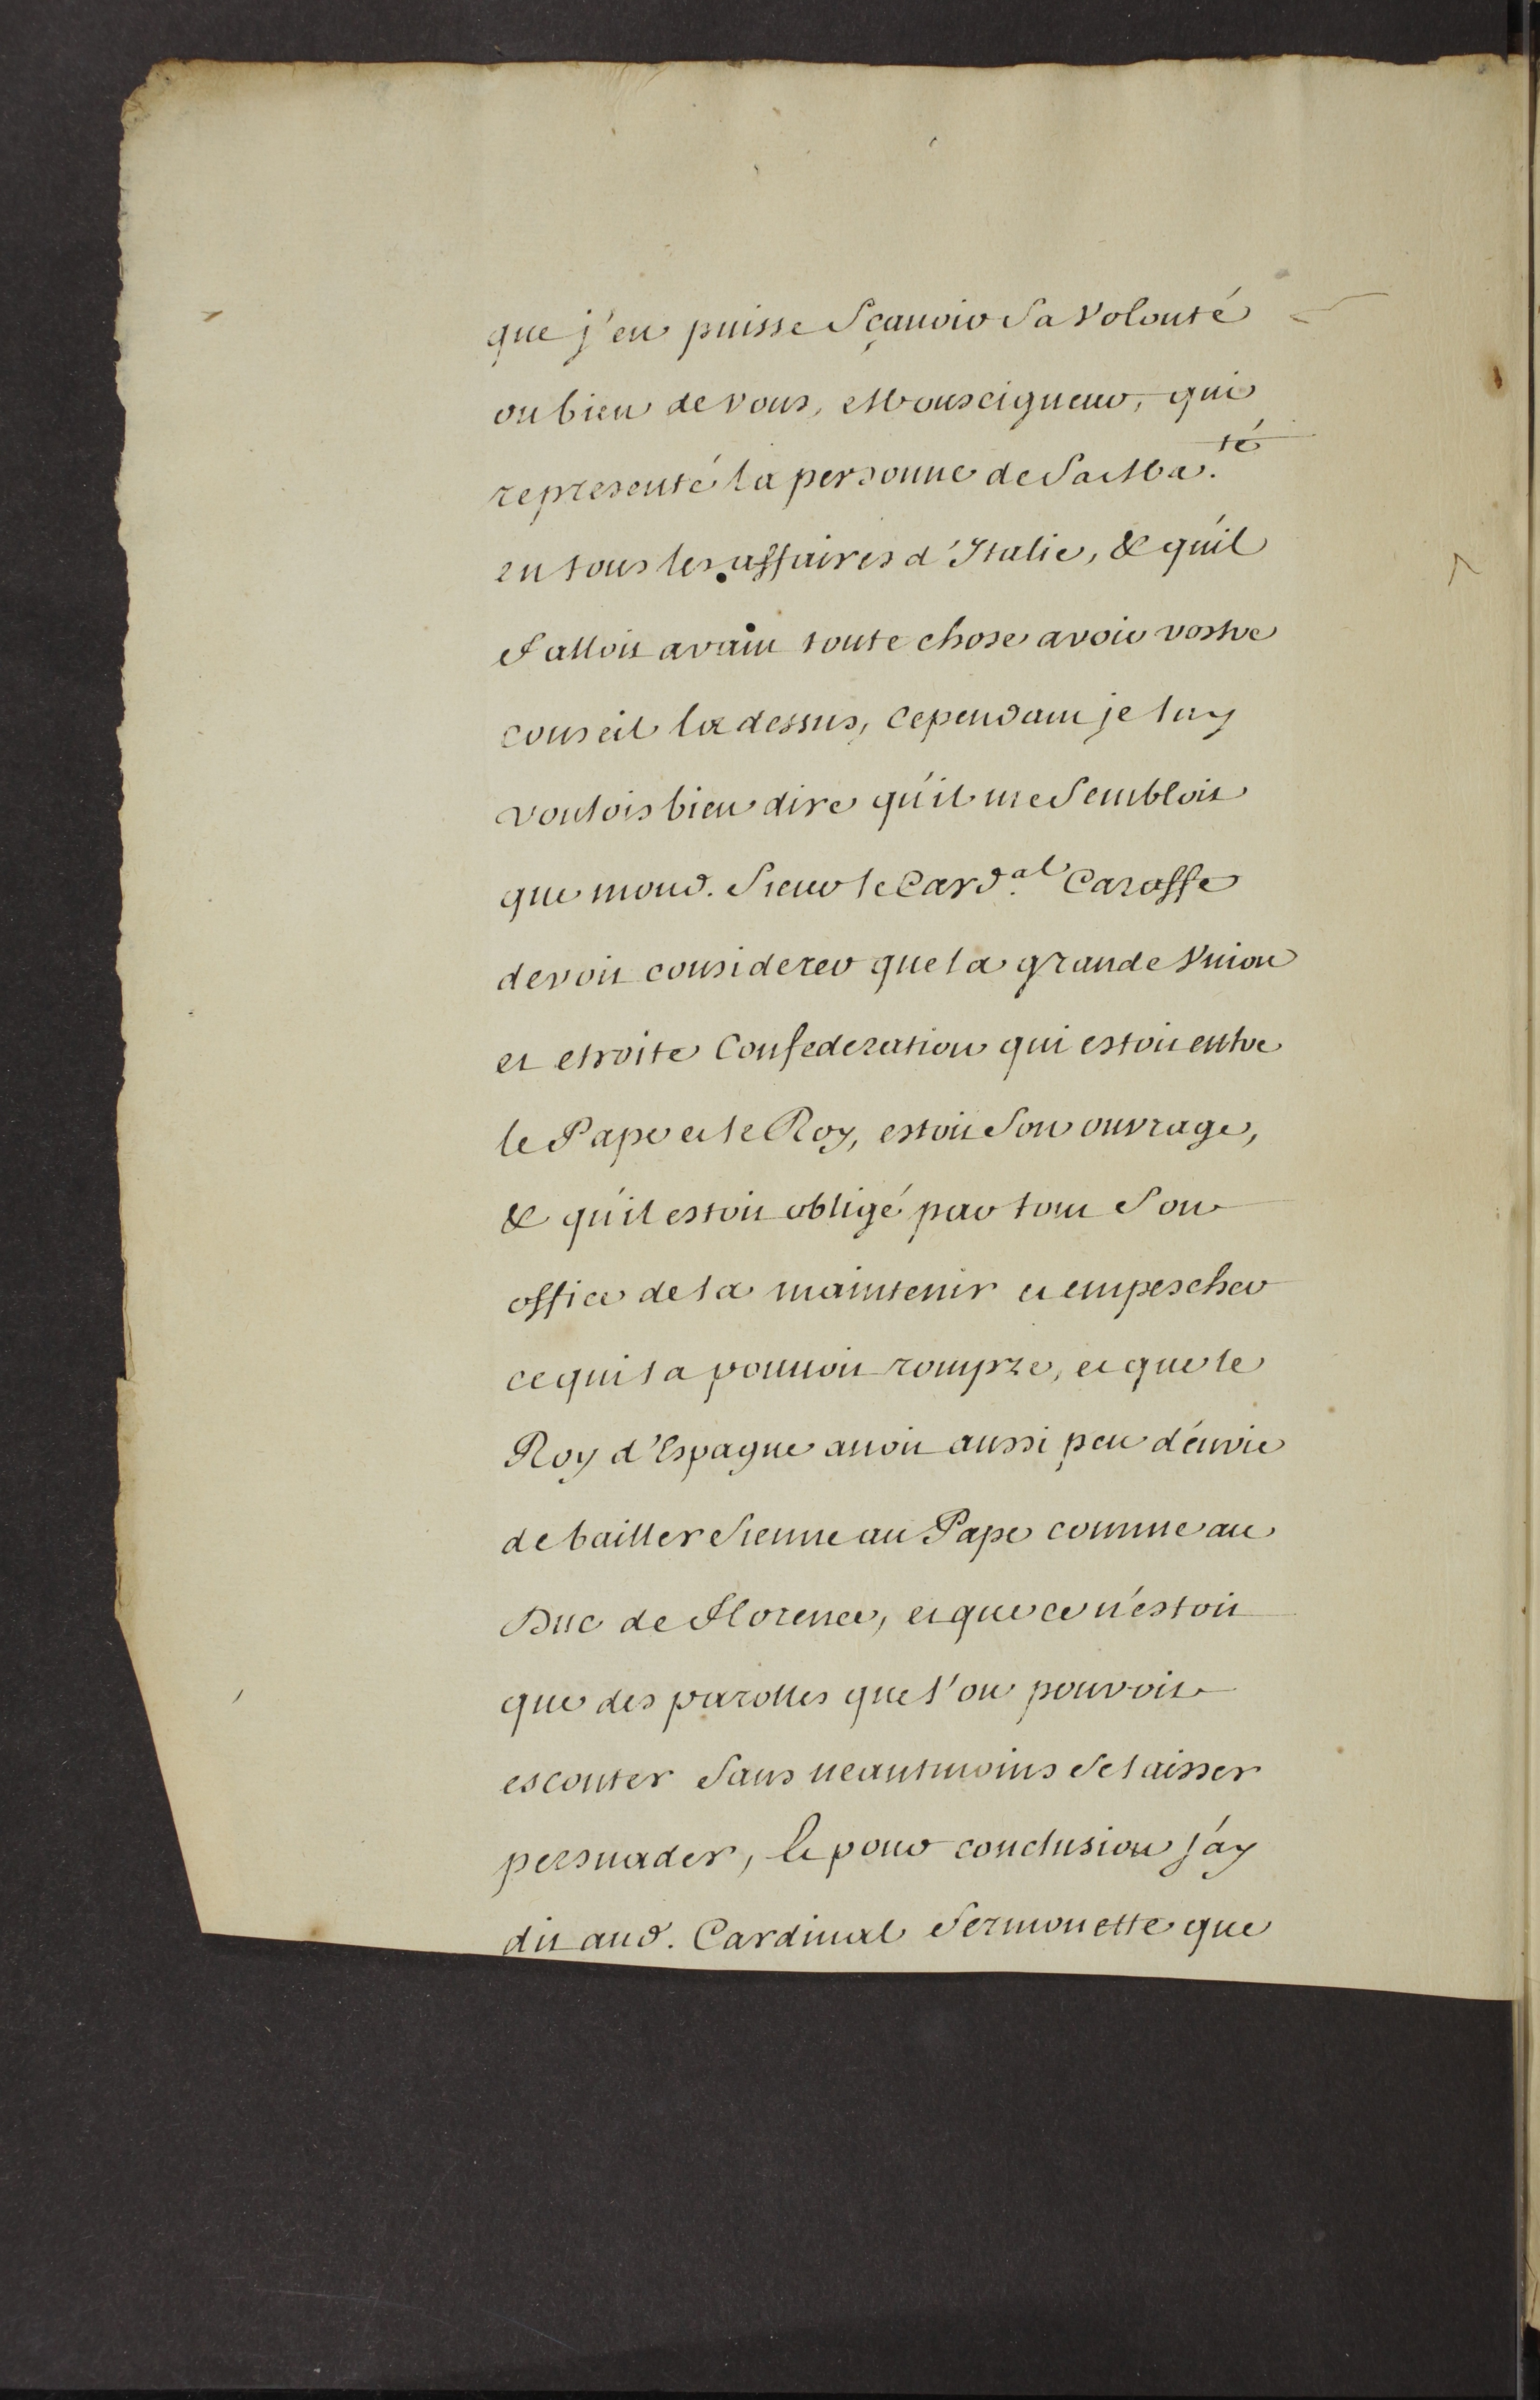 que j'en puisse Sçauoir Sa Volonté
ou bien de vous, Monseigneur, qui
representé la personne de Sa Ma.té
en tous les affaires d'Italie, & qu'il
falloit avant toute chose avoir vostre
conseil la dessus, Cependant je luy
voulois bien dire qu'il me Sembloit
que mond. Sieur le Card.al Caraffe
devoit considerer que la grande Vnion
et etroite Confederation qui estoit entre
le Pape et le Roy, estoit Son ouvrage,
& qu'il estoit obligé par tout Son
office de la maintenir et empescher
ce qui la pouuoit rompre, et que le
Roy d'Espagne auoit aussi peu d'envie
de bailler Sienne au Pape comme au
Duc de Florence, et que ce n'estoit
que des parolles que l'on pouvoit
escouter Sans neantmoins Se laisser
persuader, Et pour conclusion j'ay
dit aud. Cardinal Sermonette que